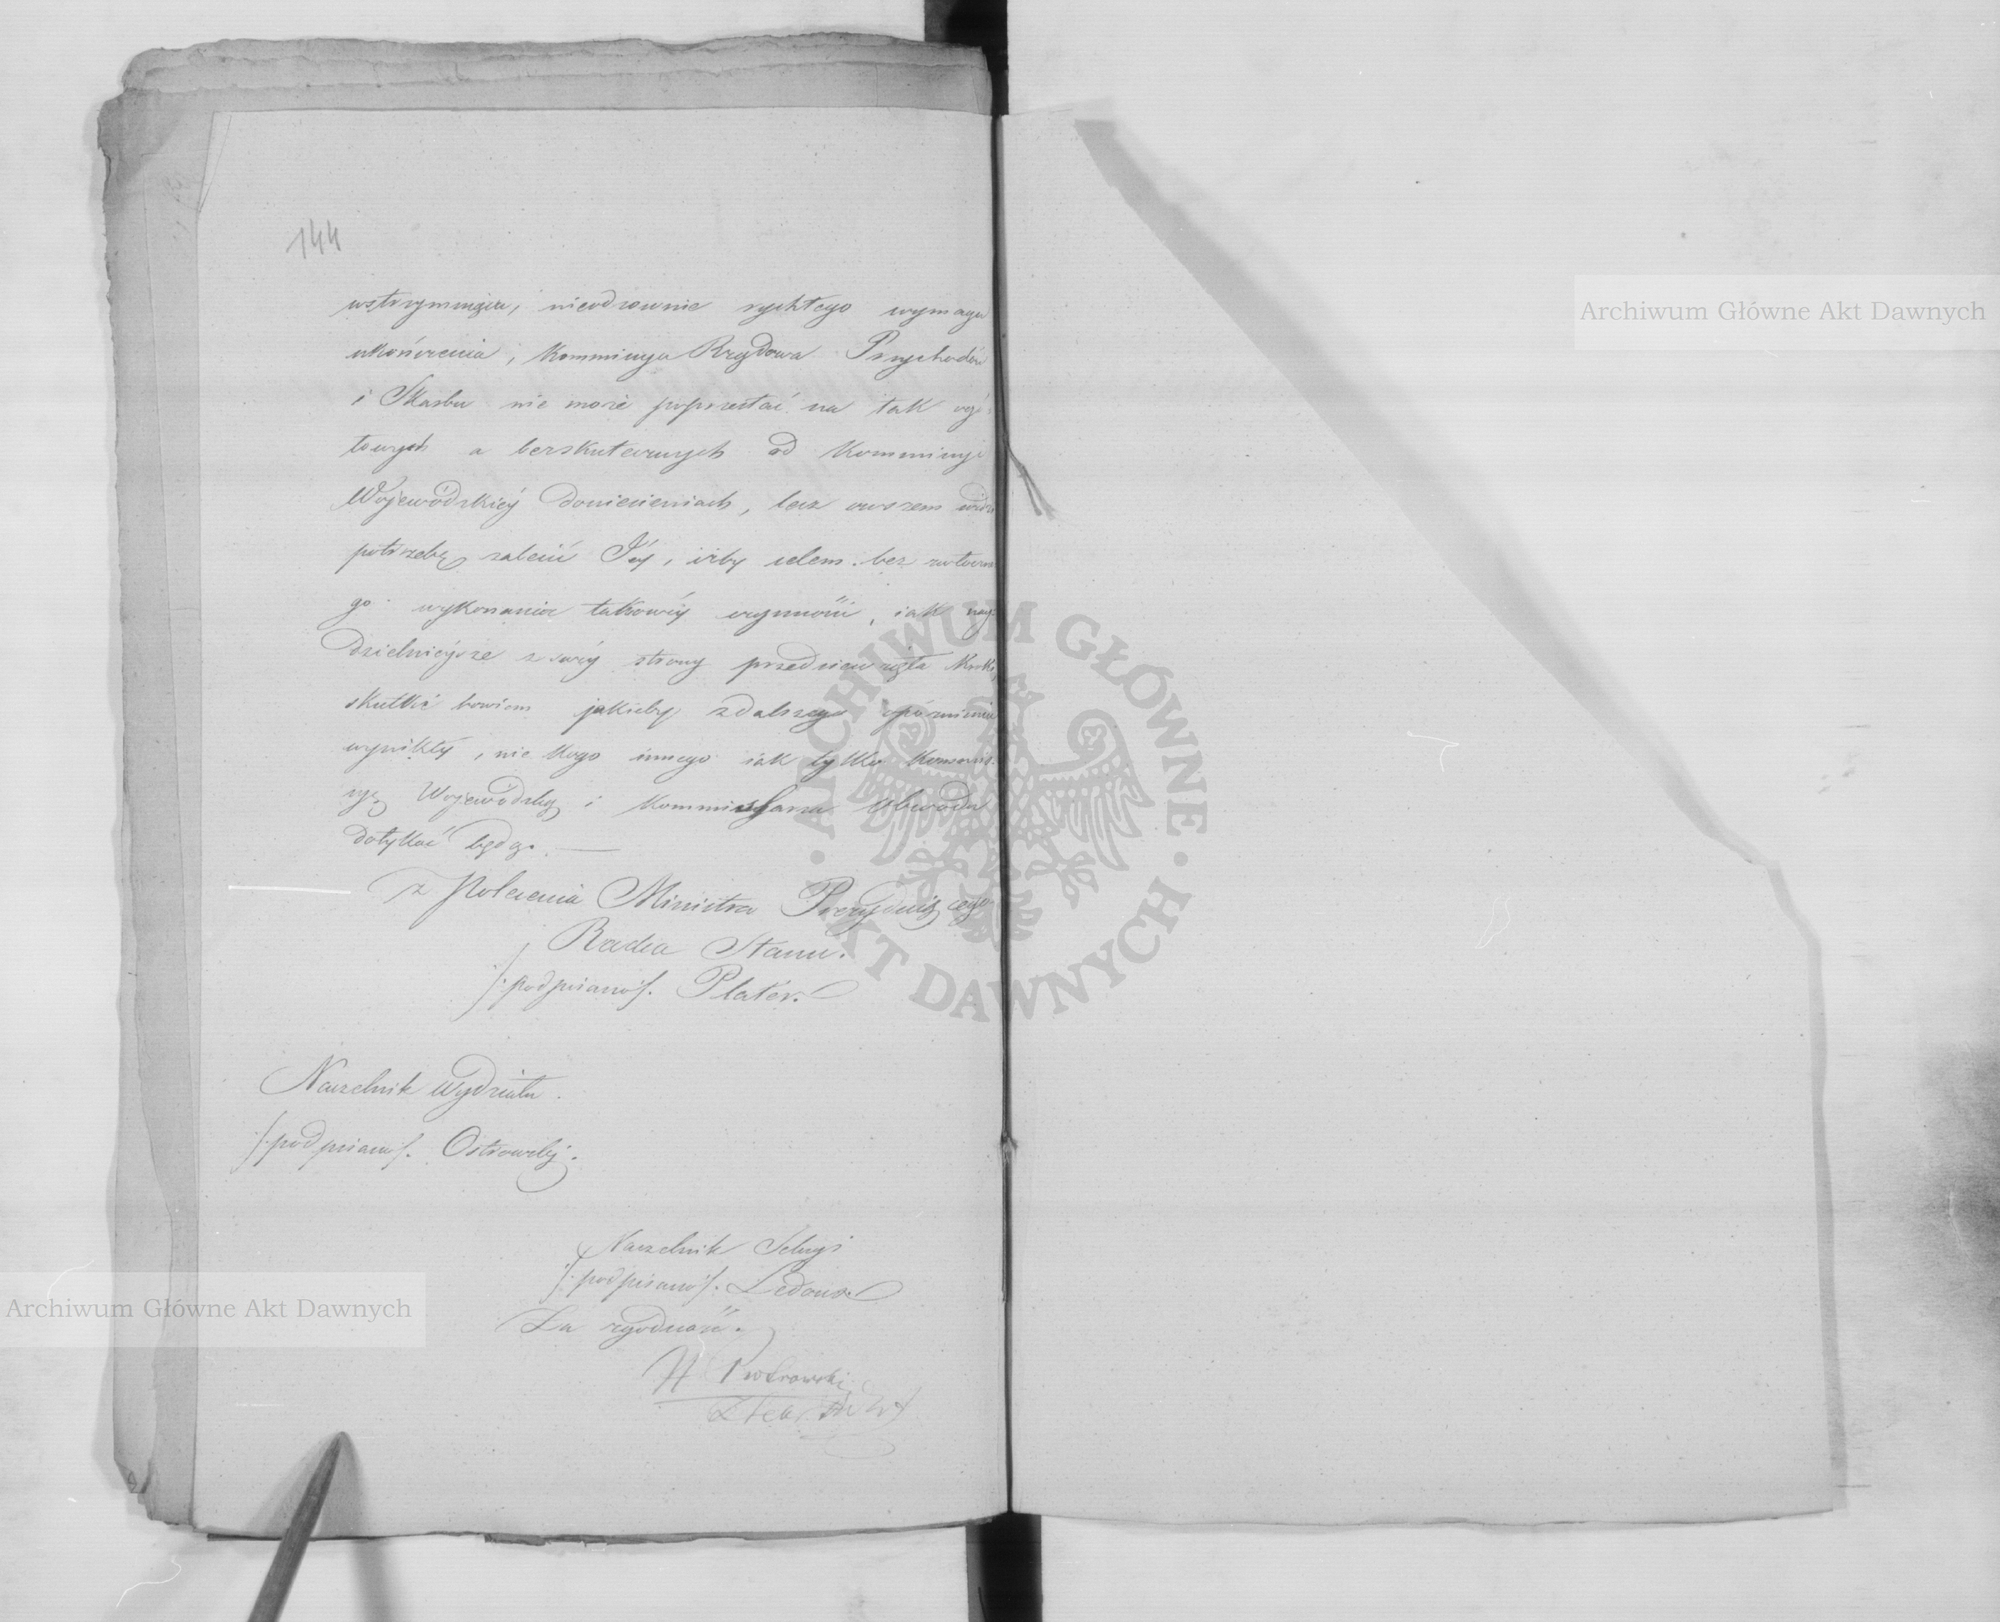 144
wstrzymuiąca, nieodzownie rychłego wymaga
ukończenia, Kommissya Rządowa Przychodów
i Skarbu nie może poprzestać na tak
a bezskutecznych od Kommissyi
Wojewódzkiéy doniesieniach, lecz owszem widzi
potrzebę zalecić Jéy, iżby celem bez
go wykonania takowéy czynności, iak nay
dzielnieysze z swéy strony przedsięwzięła kroki,
skutki bowiem jakieby z dalszego opóźnienia
wynikły, nie kogo innego iak tylko Kommis
syę Wojewódzką i Kommissarza Obwodu
dotykać będą. —
z Polecenia Ministra Prezyduiącego
Radca Stanu.
/: podpisano :/. Plater.
Naczelnik Wydziału.
/: podpisano :/. Ostrowski.
Naczelnik Sekcyi
/: podpisano :/. Ledoux
Za zgodność.
Piotrowski
Archiwum Główne Akt Dawnych
Archiwum Główne Akt Dawnych
ARCHIWUM GŁÓWNE AKT DAWNYCH